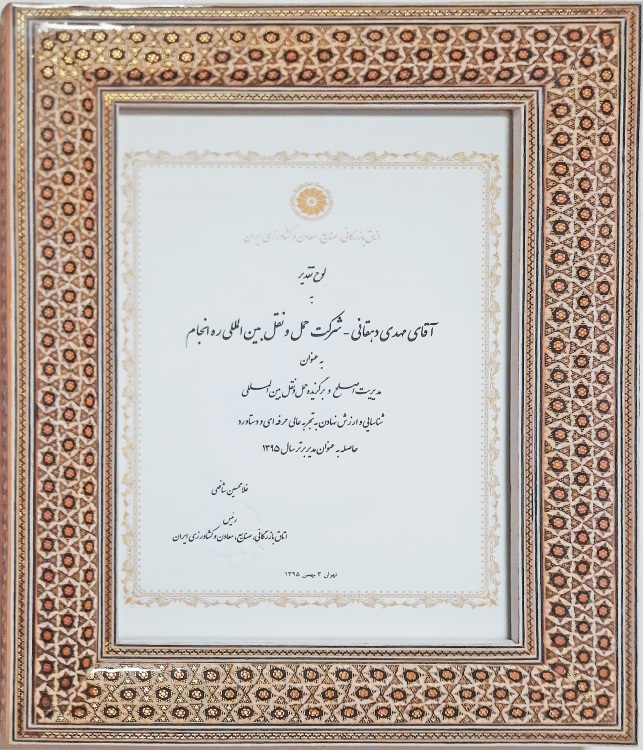 اتاق بازرگانی، صنایع، معادن و کشاورزی ایران
لوح تقدیر
به
آقای مهدی دهقانی - شرکت حمل و نقل بین المللی ره انجام
به عنوان
مدیریت اصلح و برگزیده حمل و نقل بین المللی
شناسایی و ارزش نهادن به تجربه عالی حرفه ای و دستاورد
حاصله به عنوان مدیر برتر سال ۱۳۹۵
غلامحسین شافعی
رئیس
اتاق بازرگانی، صنایع، معادن و کشاورزی ایران
تهران ۳ بهمن ۱۳۹۵